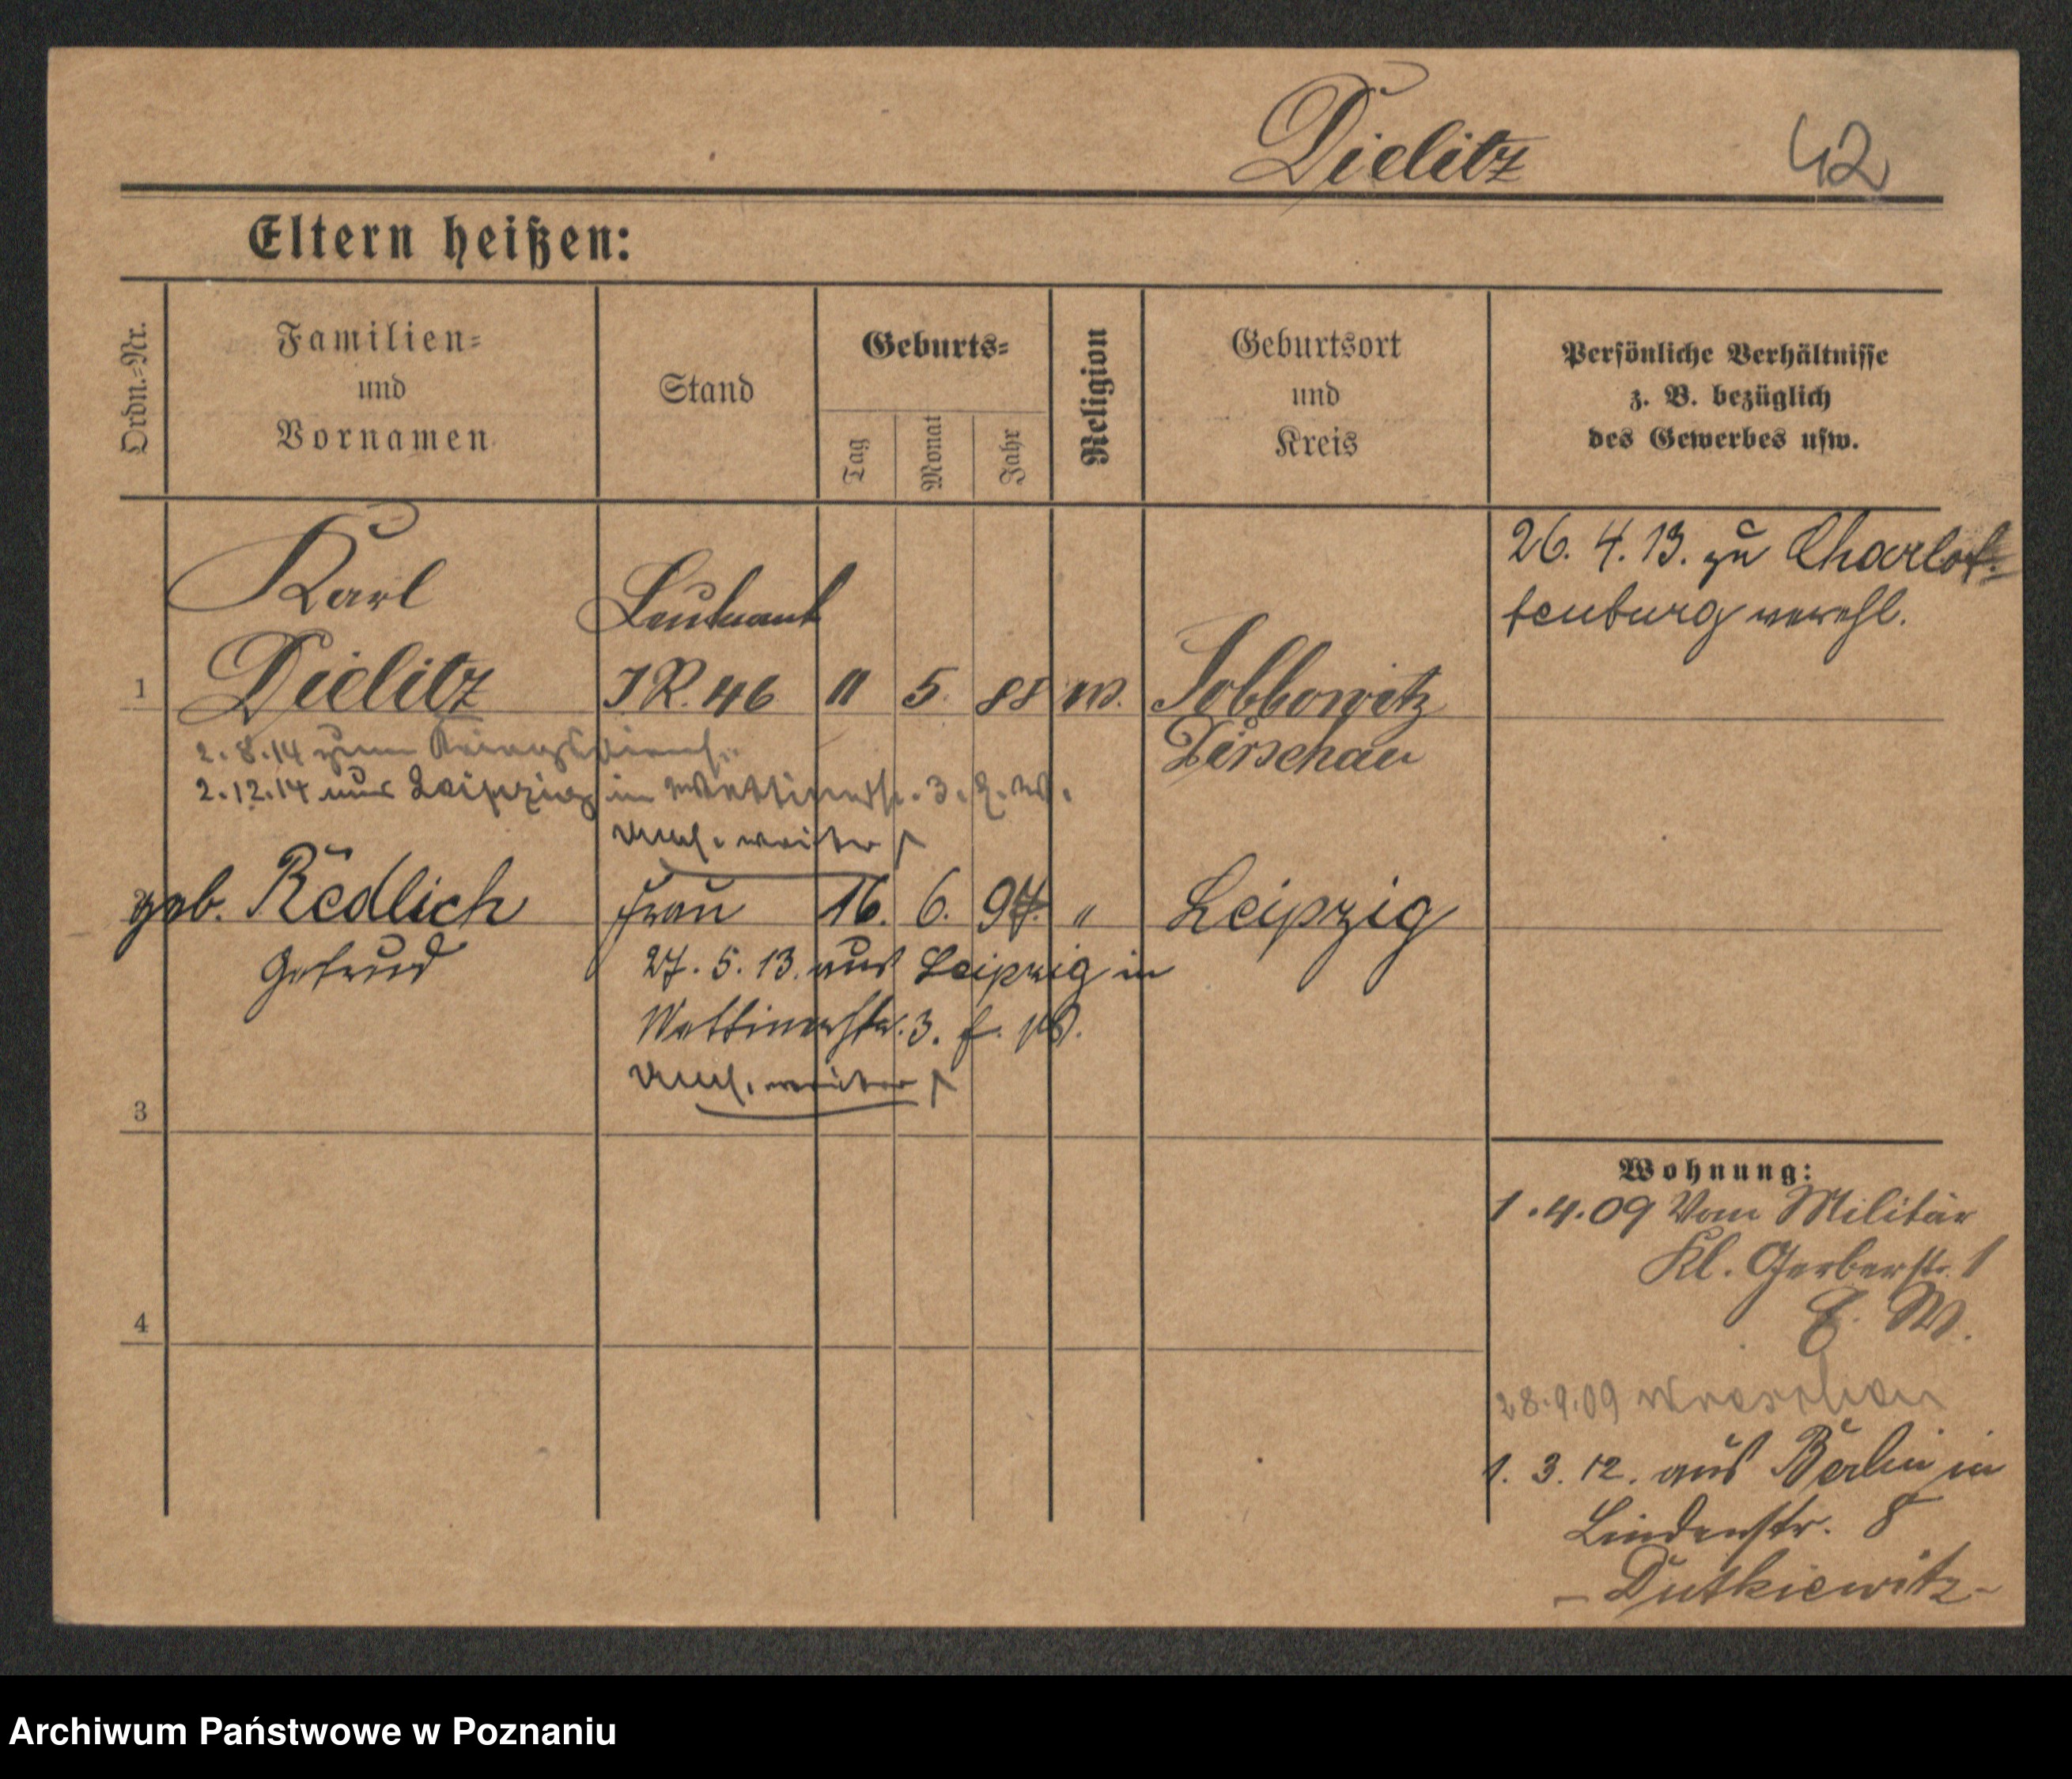 Dielitz 42
Eltern heißen:
Ordn.=Nr.
Familien=
und
Vornamen
Stand
Geburts=
Tag
Monat
Jahr
Religion
Geburtsort
und
Kreis
Persönliche Verhältnisse
z. B. bezüglich
des Gewerbes usw.
26. 4. 13. zu Charlot=
tenburg verehl.
Karl Leutnant
1 Dielitz JR. 46 11 5. 88 Sobbowitz
Dirschau
2.8.14 zum Kriegsdienst
2.12.14 aus Leipzig in Wettinerstr. 3.
weiter
geb. Redlich Frau 16. 6. " Leipzig
27. 5. 13. aus Leipzig in
Wettinerstr. 3.
weiter
3
4
Wohnung:
1.4.09 Vom Militär
Kl. Gerberstr. 1
28.9.09 Wreschen
1. 3. 12. aus Berlin in
Lindenstr. 8
- Dutkiewitz -
Archiwum Państwowe w Poznaniu